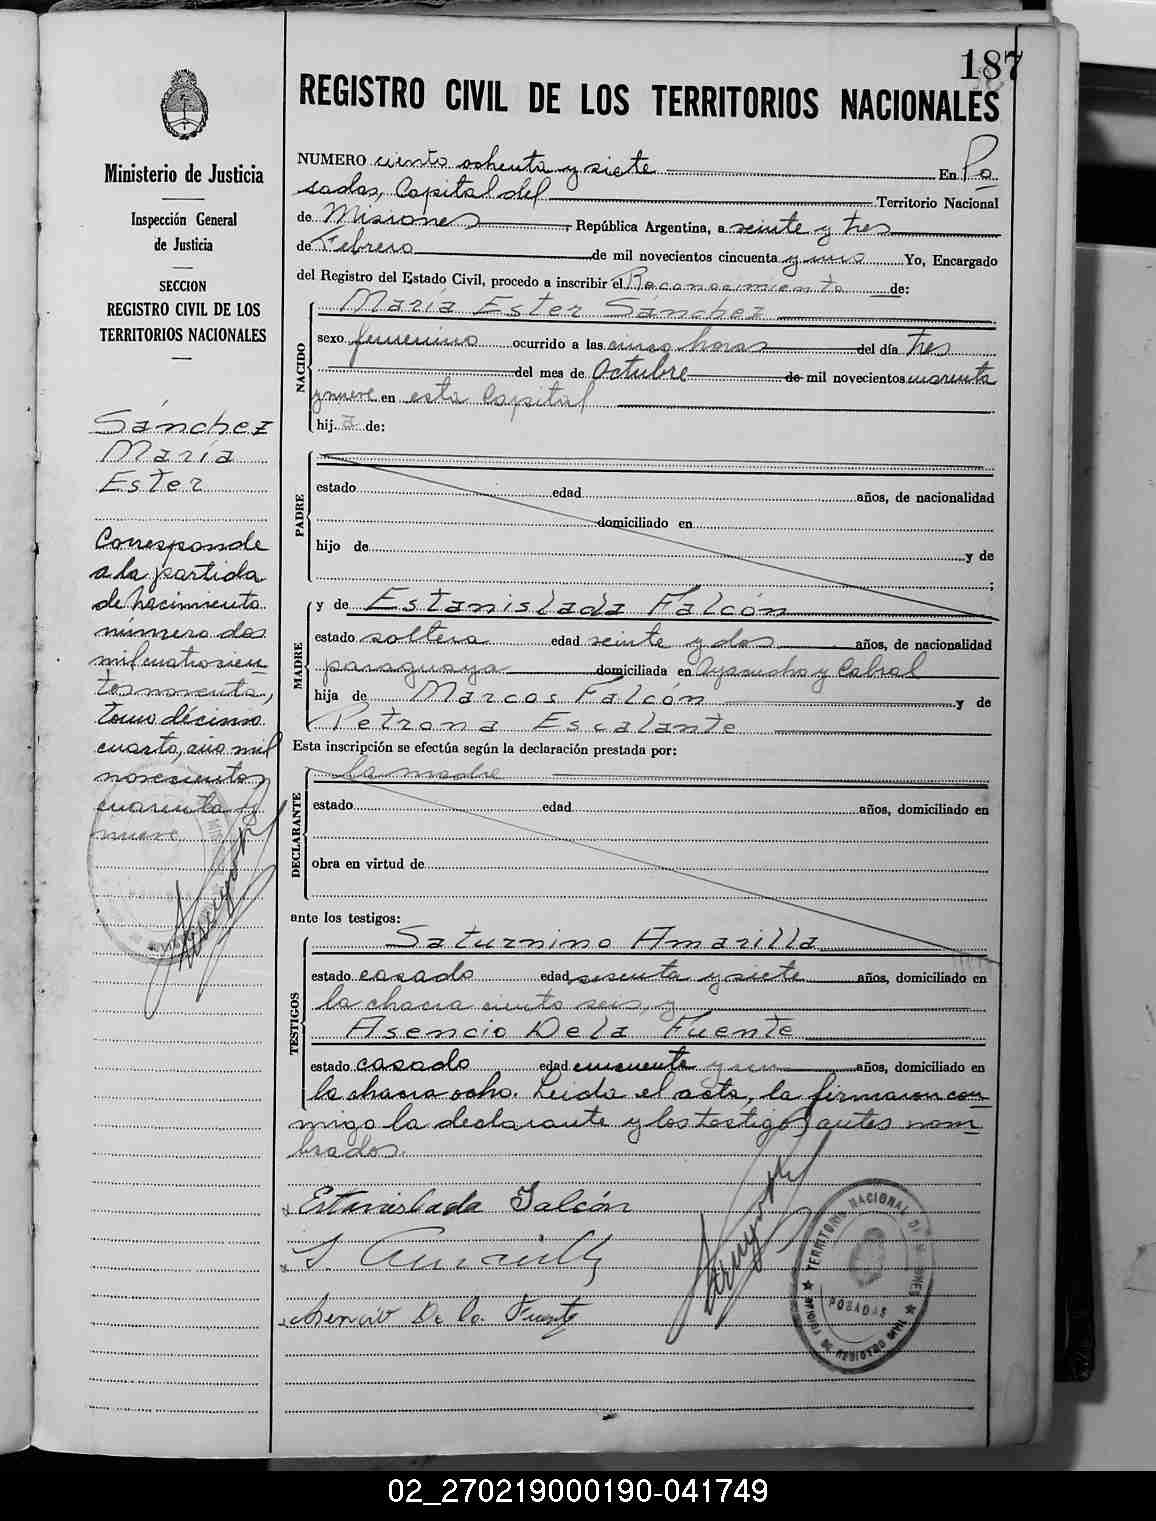 187
REGISTRO CIVIL DE LOS TERRITORIOS NACIONALES
Ministerio de Justicia
Inspección General
de Justicia
SECCION
REGISTRO CIVIL DE LOS
TERRITORIOS NACIONALES
Sánchez
María
Ester
Corresponde
a la partida
de nacimiento
número dos
mil cuatrocien-
tos noventa,
tomo décimo
cuarto, año mil
novecientos
cuarenta y
nueve
NUMERO ciento ochenta y siete En Po
sadas, Capital del Territorio Nacional
de Misiones, República Argentina, a veinte y tres
de Febrero de mil novecientos cincuenta y uno Yo, Encargado
del Registro del Estado Civil, procedo a inscribir el Reconocimiento de:
NACIDO
María Ester Sánchez
sexo femenino ocurrido a las cinco horas del día tres
del mes de Octubre de mil novecientos cuarenta
y nueve en esta Capital
hija de:
PADRE
estado edad años, de nacionalidad
domiciliado en
hijo de y de
;
MADRE
y de Estanislada Falcón
estado soltera edad veinte y dos años, de nacionalidad
paraguaya domiciliada en Ayacucho y Cabral
hija de Marcos Falcón y de
Petrona Escalante
Esta inscripción se efectúa según la declaración prestada por:
DECLARANTE
la madre
estado edad años, domiciliado en
obra en virtud de
ante los testigos:
TESTIGOS
Saturnino Amarilla
estado casado edad sesenta y siete años, domiciliado en
la chacra ciento seis, y
Asencio De la Fuente
estado casado edad cincuenta y un años, domiciliado en
la chacra ocho. Leida el acta, la firmaron con-
migo la declarante y los testigos antes nom-
brados.
Estanislada Falcón
S. Amarilla
Asencio De la Fuente
TERRITORIO NACIONAL DE MISIONES
POSADAS
02_270219000190-041749